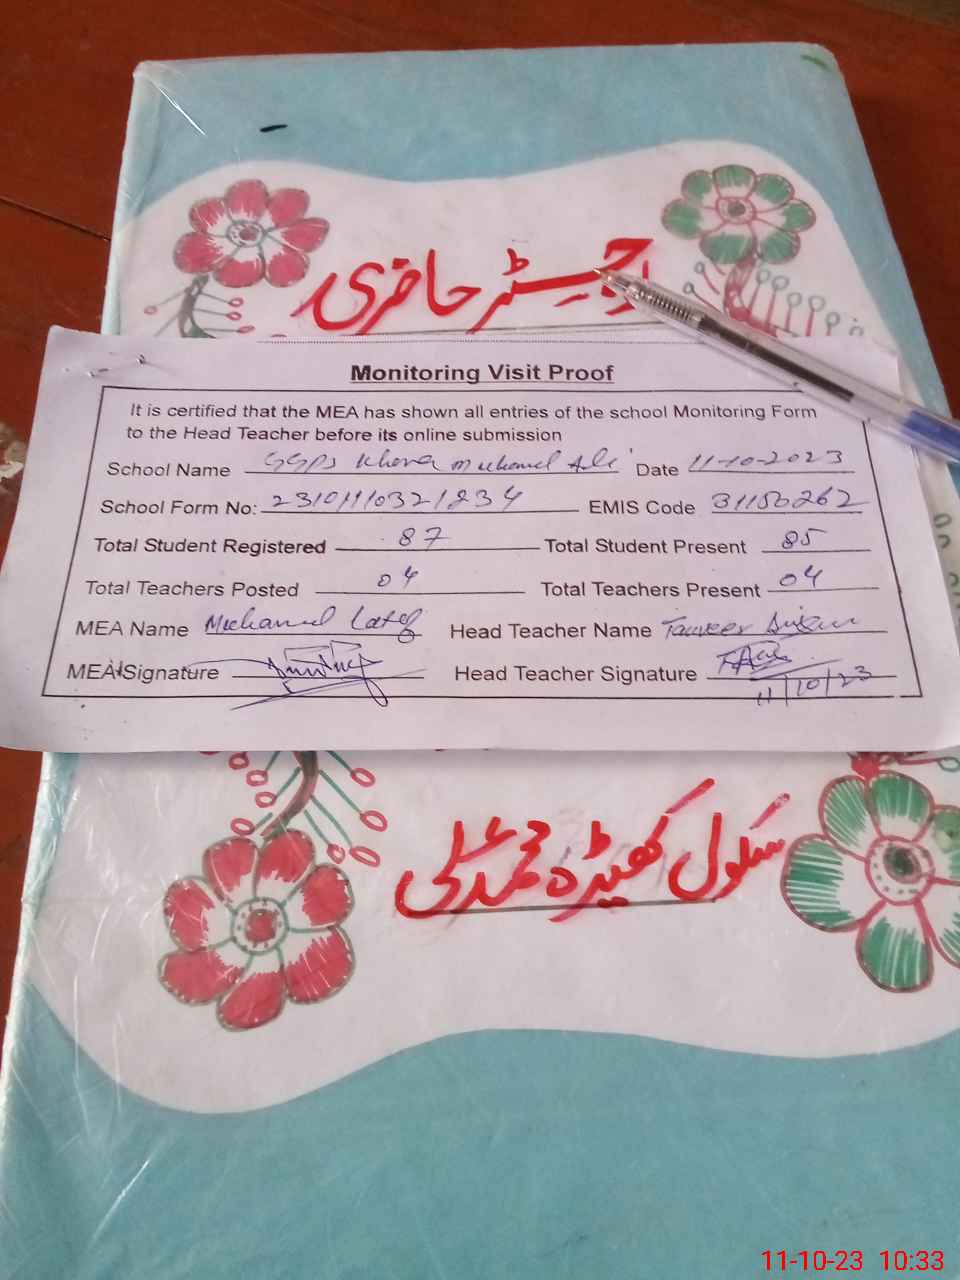 رجسٹر حاضری
Monitoring Visit Proof
It is certified that the MEA has shown all entries of the school Monitoring Form
to the Head Teacher before its online submission
School Name GGPS Khera Muhammad Ali Date 11-10-2023
School Form No: 23101110321234 EMIS Code 31150262
Total Student Registered 87 Total Student Present 85
Total Teachers Posted 04 Total Teachers Present 04
MEA Name Muhammad Latif Head Teacher Name
MEA Signature Head Teacher Signature
11/10/23
سکول کھیڑہ محمد علی
11-10-23 10:33